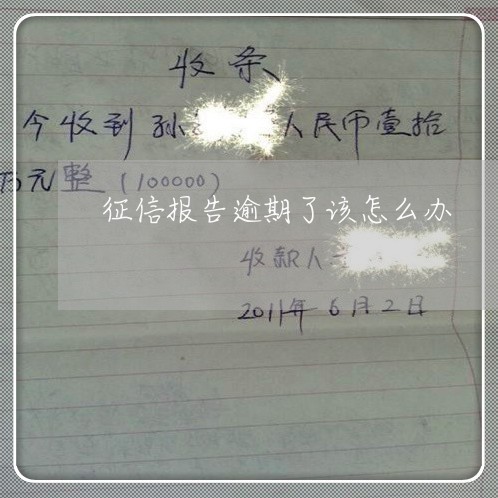 收条
今收到孙人民币壹拾
万元整（100000）
征信报告逾期了该怎么办
收款人
2011年6月2日